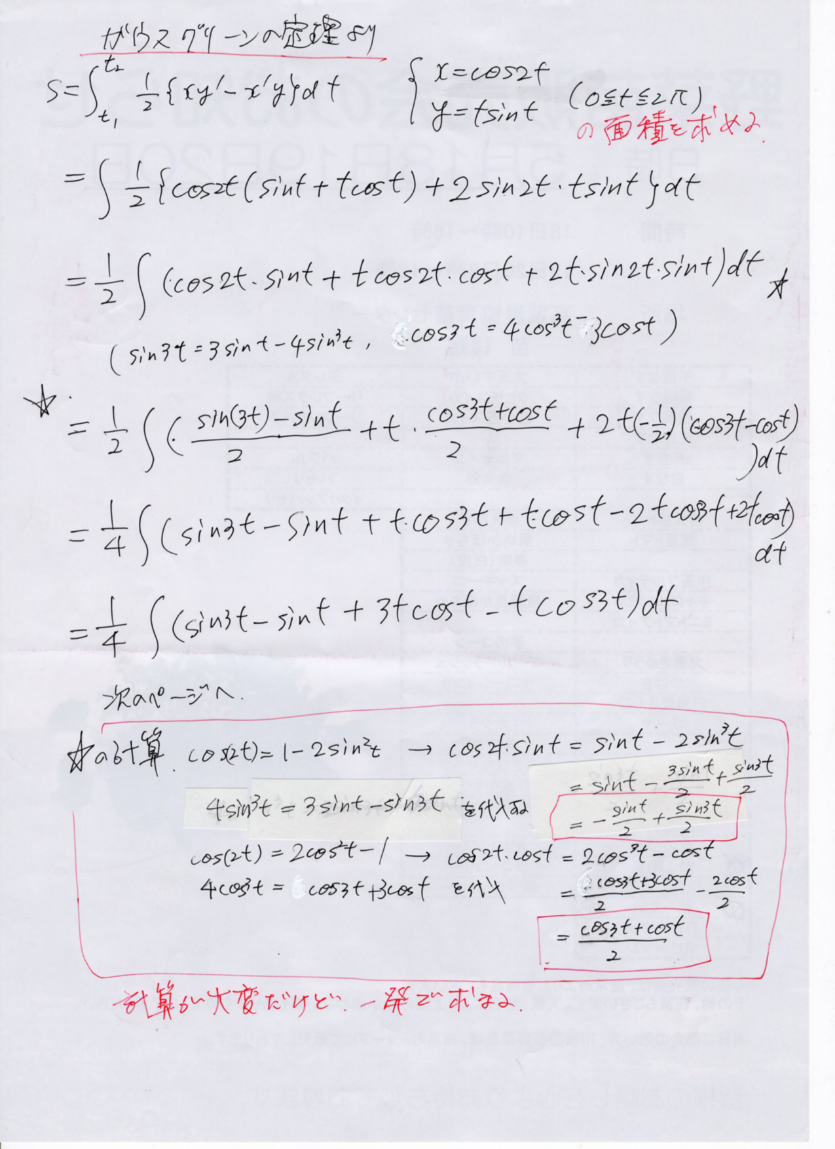 ガウスグリーンの定理より
S=∫_{t₁}^{t₂} 1/2{xy′−x′y}dt { x=cos2t
y=tsint (0≦t≦2π)
の面積を求める.
=∫1/2{cos2t(sint+tcost)+2sin2t·tsint}dt
=1/2∫(cos2t·sint+tcos2t·cost+2t·sin2t·sint)dt ☆
(sin3t=3sint−4sin³t, cos3t=4cos³t−3cost)
☆
=1/2∫(sin(3t)−sint/2+t·cos3t+cost/2+2t(−1/2)(cos3t−cost))dt
=1/4∫(sin3t−sint+t·cos3t+t·cost−2tcos3t+2tcost)dt
=1/4∫(sin3t−sint+3tcost−tcos3t)dt
次のページへ.
☆の計算. cos(2t)=1−2sin²t → cos2t·sint=sint−2sin³t
=sint−3sint/2+sin3t/2
4sin³t=3sint−sin3t を代入する =−sint/2+sin3t/2
cos(2t)=2cos²t−1 → cos2t·cost=2cos³t−cost
4cos³t=cos3t+3cost を代入 =cos3t+3cost/2−2cost/2
=cos3t+cost/2
計算が大変だけど、一発で求まる.